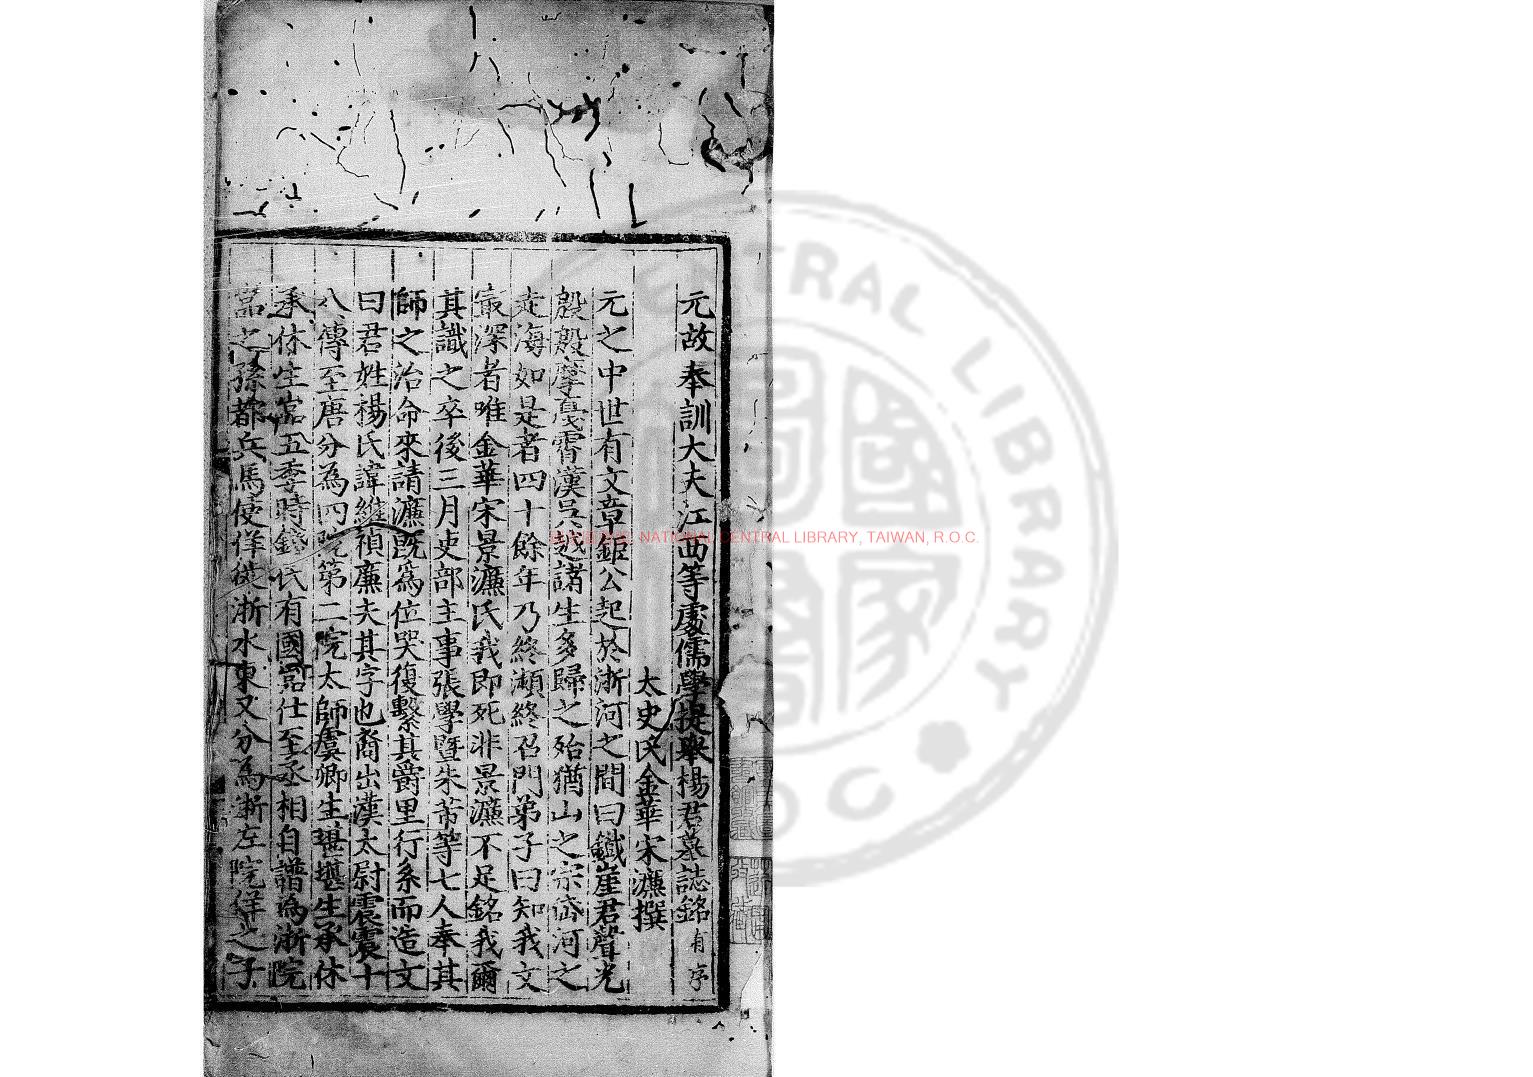 元故奉訓大夫江西等處儒學提舉楊君墓誌銘有序
太史氏金華宋濂撰
元之中世有文章鉅公起於浙河之間曰鐵崖君聲光
殷殷摩戛霄漢吳越諸生多歸之殆猶山之宗岱河之
走海如是者四十餘年乃終瀕終召門弟子曰知我文
最深者唯金華宋景濂氏我即死非景濂不足銘我爾
其識之卒後三月吏部主事張學暨朱芾等七人奉其
師之治命來請濂既為位哭復繫其爵里行系而造文
曰君姓楊氏諱維禎廉夫其字也裔出漢太尉震震十
八傳至唐分為四院第二院太師虞卿生堪堪生承休
承休生嵓五季時錢氏有國嵓仕至丞相自譜為浙院
嵓之孫都兵馬使佯徙浙水東又分為浙左院佯之子
NATIONAL CENTRAL LIBRARY, TAIWAN, R.O.C.
CENTRAL LIBRARY